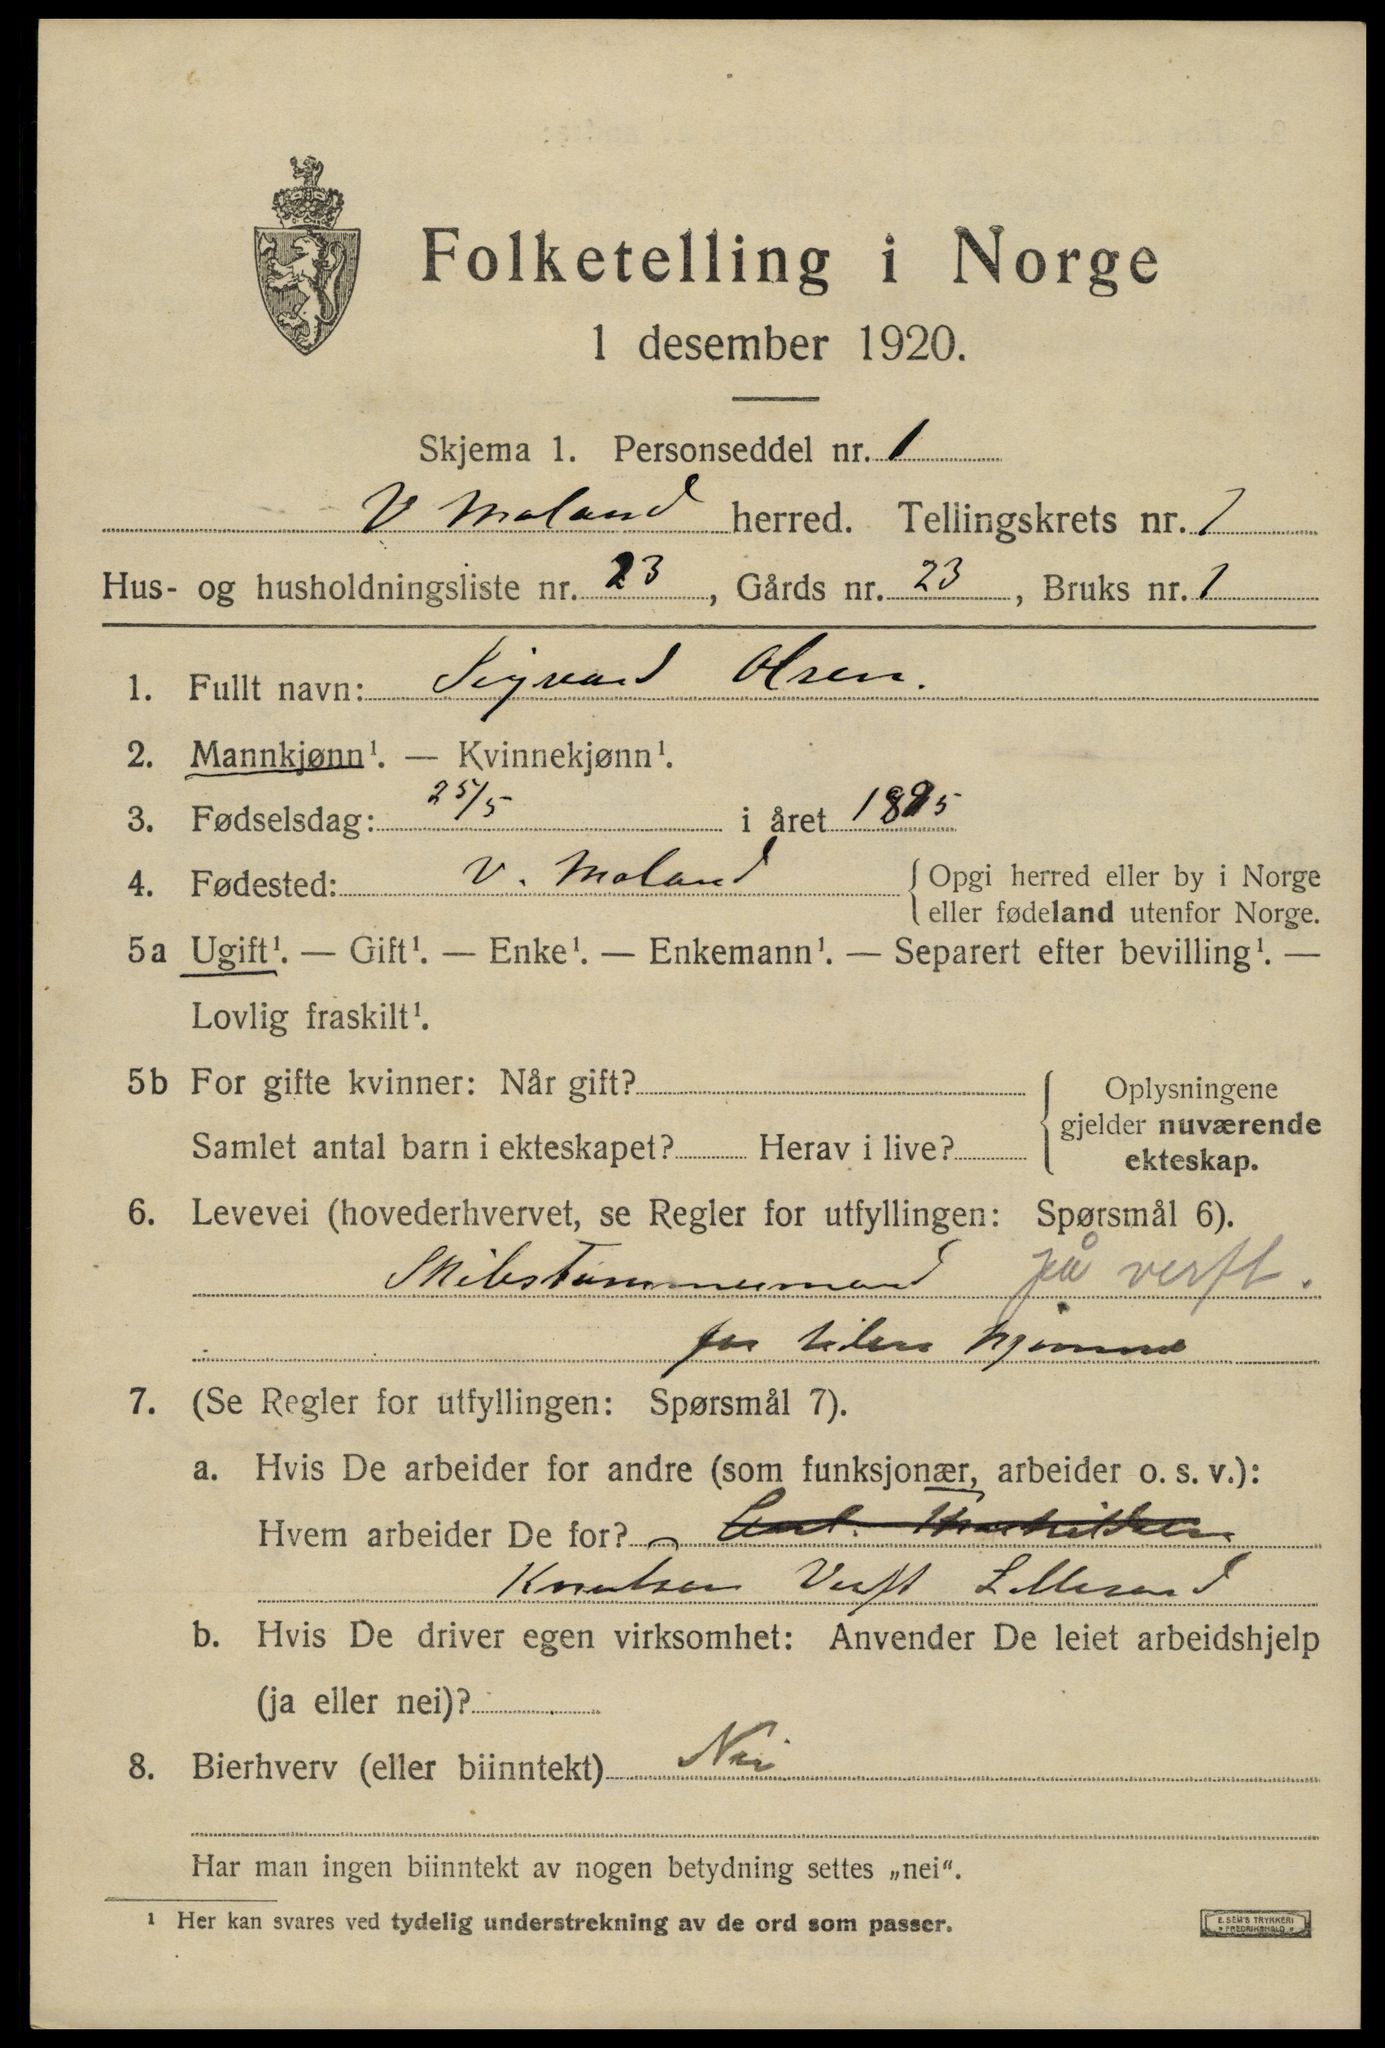 Folketelling i Norge
1 desember 1920.
Skjema 1. Personseddel nr. 1
V Moland herred. Tellingskrets nr. 1
Hus- og husholdningsliste nr. 23, Gårds nr. 23, Bruks nr. 1
1. Fullt navn: Sigvard Olsen.
2. Mannkjønn¹. — Kvinnekjønn¹.
3. Fødselsdag: 25/5 i året 1895
4. Fødested: V. Moland {Opgi herred eller by i Norge
eller fødeland utenfor Norge.
5a Ugift¹. — Gift¹. — Enke¹. — Enkemann¹. — Separert efter bevilling¹. —
Lovlig fraskilt¹.
5b For gifte kvinner: Når gift? Oplysningene
gjelder nuværende
Samlet antal barn i ekteskapet? Herav i live? ekteskap.
6. Levevei (hovederhvervet, se Regler for utfyllingen: Spørsmål 6).
Skibstømmermand på verft.
for tiden hjemme
7. (Se Regler for utfyllingen: Spørsmål 7).
a. Hvis De arbeider for andre (som funksjonær, arbeider o. s. v.):
Hvem arbeider De for?
Knutsen Verft Lillesand
b. Hvis De driver egen virksomhet: Anvender De leiet arbeidshjelp
(ja eller nei)?
8. Bierhverv (eller biinntekt) Nei
Har man ingen biinntekt av nogen betydning settes „nei“.
¹ Her kan svares ved tydelig understrekning av de ord som passer.
E. SEM'S TRYKKERI
FREDRIKSHALD